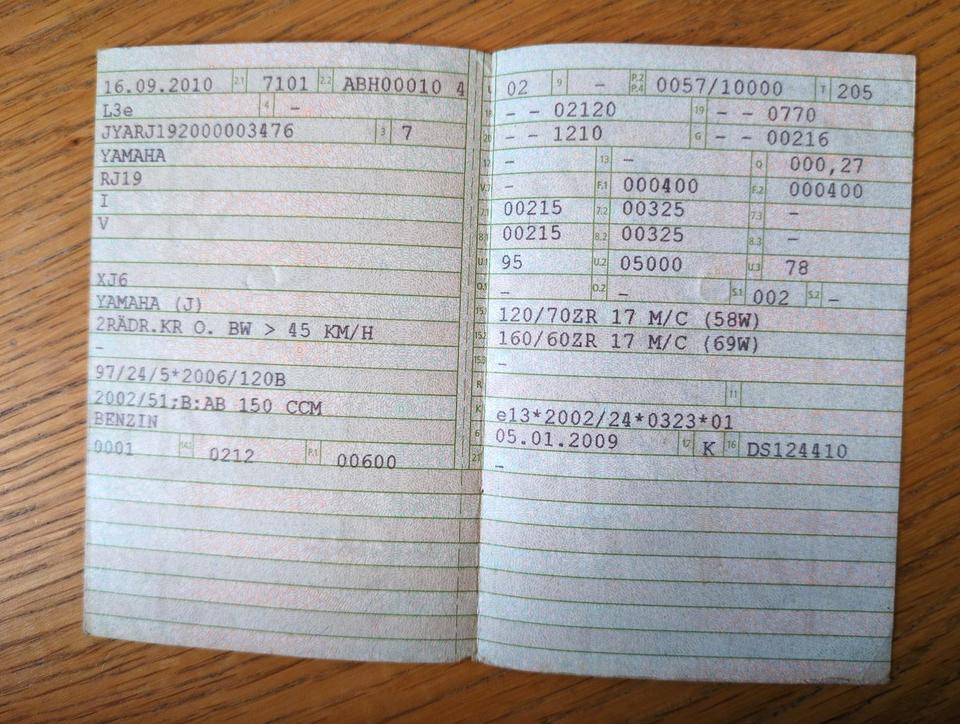 16.09.2010 2.1 7101 2.2 ABH00010 4
L3e 4 -
JYARJ192000003476 3 7
YAMAHA
RJ19
I
V
XJ6
YAMAHA (J)
2RÄDR.KR O. BW > 45 KM/H
-
97/24/5*2006/120B
2002/51;B:AB 150 CCM
BENZIN
0001 14.1 0212 P.1 00600
L 02 9 - P.2 P.4 0057/10000 T 205
18 - - 02120 19 - - 0770
20 - - 1210 G - - 00216
12 - 13 - Q 000,27
V.7 - F.1 000400 F.2 000400
7.1 00215 7.2 00325 7.3 -
8.1 00215 8.2 00325 8.3 -
U.1 95 U.2 05000 U.3 78
O.1 - O.2 - S.1 002 S.2 -
15.1 120/70ZR 17 M/C (58W)
15.2 160/60ZR 17 M/C (69W)
15.3 -
R 11
K e13*2002/24*0323*01
6 05.01.2009 17 K 16 DS124410
21 -